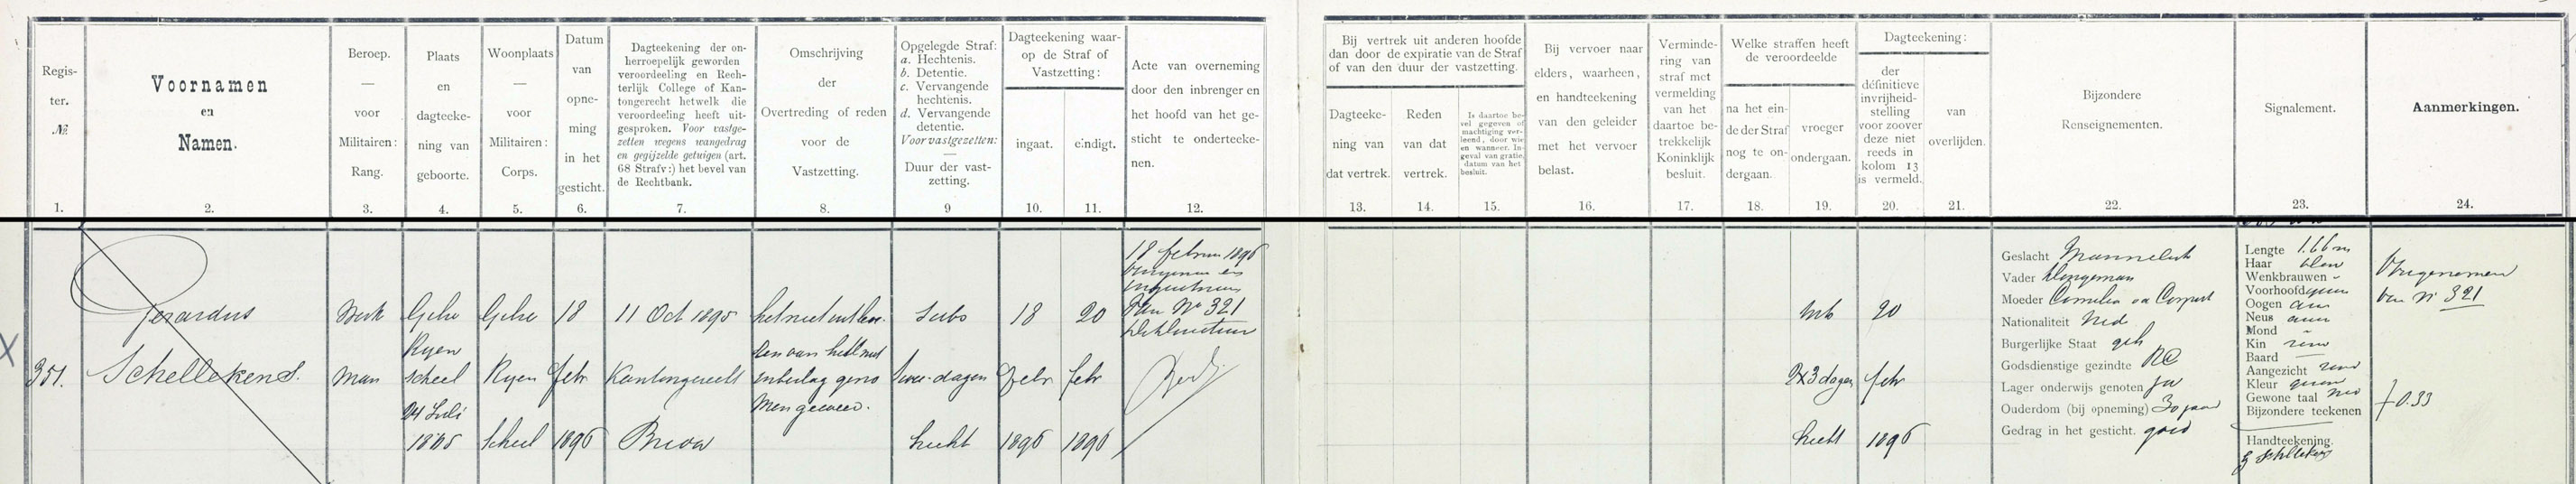 Regis-
ter.
№
1.
Voornamen
en
Namen.
2.
Beroep.
—
voor
Militairen:
Rang.
3.
Plaats
en
dagteeke-
ning van
geboorte.
4.
Woonplaats
—
voor
Militairen:
Corps.
5.
Datum
van
opne-
ming
in het
gesticht.
6.
Dagteekening der on-
herroepelijk geworden
veroordeeling en Rech-
terlijk College of Kan-
tongerecht hetwelk die
veroordeeling heeft uit-
gesproken. Voor vastge-
zetten wegens wangedrag
en gegijzelde getuigen (art.
68 Strafv:) het bevel van
de Rechtbank.
7.
Omschrijving
der
Overtreding of reden
voor de
Vastzetting.
8.
Opgelegde Straf:
a. Hechtenis.
b. Detentie.
c. Vervangende
hechtenis.
d. Vervangende
detentie.
Voor vastgezetten:
—
Duur der vast-
zetting.
9
Dagteekening waar-
op de Straf of
Vastzetting:
ingaat.
10.
eindigt.
11.
Acte van overneming
door den inbrenger en
het hoofd van het ge-
sticht te onderteeke-
nen.
12.
Bij vertrek uit anderen hoofde
dan door de expiratie van de Straf
of van den duur der vastzetting.
Dagteeke-
ning van
dat vertrek.
13.
Reden
van dat
vertrek.
14.
Is daartoe be-
vel gegeven of
machtiging ver-
leend, door wie
en wanneer. In-
geval van gratie,
datum van het
besluit.
15.
Bij vervoer naar
elders, waarheen,
en handteekening
van den geleider
met het vervoer
belast.
16.
Verminde-
ring van
straf met
vermelding
van het
daartoe be-
trekkelijk
Koninklijk
besluit.
17.
Welke straffen heeft
de veroordeelde
na het ein-
de der Straf
nog te on-
dergaan.
18.
vroeger
ondergaan.
19.
Dagteekening:
der
définitieve
invrijheid-
stelling
voor zoover
deze niet
reeds in
kolom 13
is vermeld.
20.
van
overlijden.
21.
Bijzondere
Renseignementen.
22.
Signalement.
23.
Aanmerkingen.
24.
X
351.
Gerardus
Schellekens.
Werk
man
Gilze
Ryen
scheel
24 Juli
1865
Gilze
Ryen
scheel
18
febr
1896
11 Oct 1895
Kantongerecht
Breda
geweer.
Subs
twee dagen
hecht
18
febr
1896
20
febr
1896
18 februari 1896
Van No 321
2x3 dagen
hecht
20
febr
1896
Geslacht Mannelijk
Vader
Moeder Cornelia
Nationaliteit Ned
Burgerlijke Staat geh
Godsdienstige gezindte RC
Lager onderwijs genoten ja
Ouderdom (bij opneming) 30 jaar
Gedrag in het gesticht. goed
Lengte 1.66 m
Haar blon
Wenkbrauwen -
Voorhoofd
Oogen
Neus
Mond
Kin
Baard —
Aangezicht
Kleur
Gewone taal Ned
Bijzondere teekenen
—
Handteekening.
G Schellekens
Overgenomen
van No 321
f 0.33